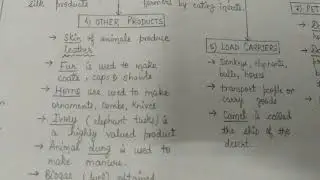 silk products
farmers by eating insects.
4) OTHER PRODUCTS
→ Skin of animals produce
leather
→ Fur is used to make
coats, caps & shawls
→ Horns are used to make
ornaments, combs, knives
→ Ivory (elephant tusks) is
a highly valued product
→ Animal dung is used to
make manure.
→ Biogas (fuel) obtained
5) LOAD CARRIERS
→ Donkeys, elephants,
bulls, horses
→ transport people or
carry goods
→ Camel is called
the ship of the
desert.
7) PET